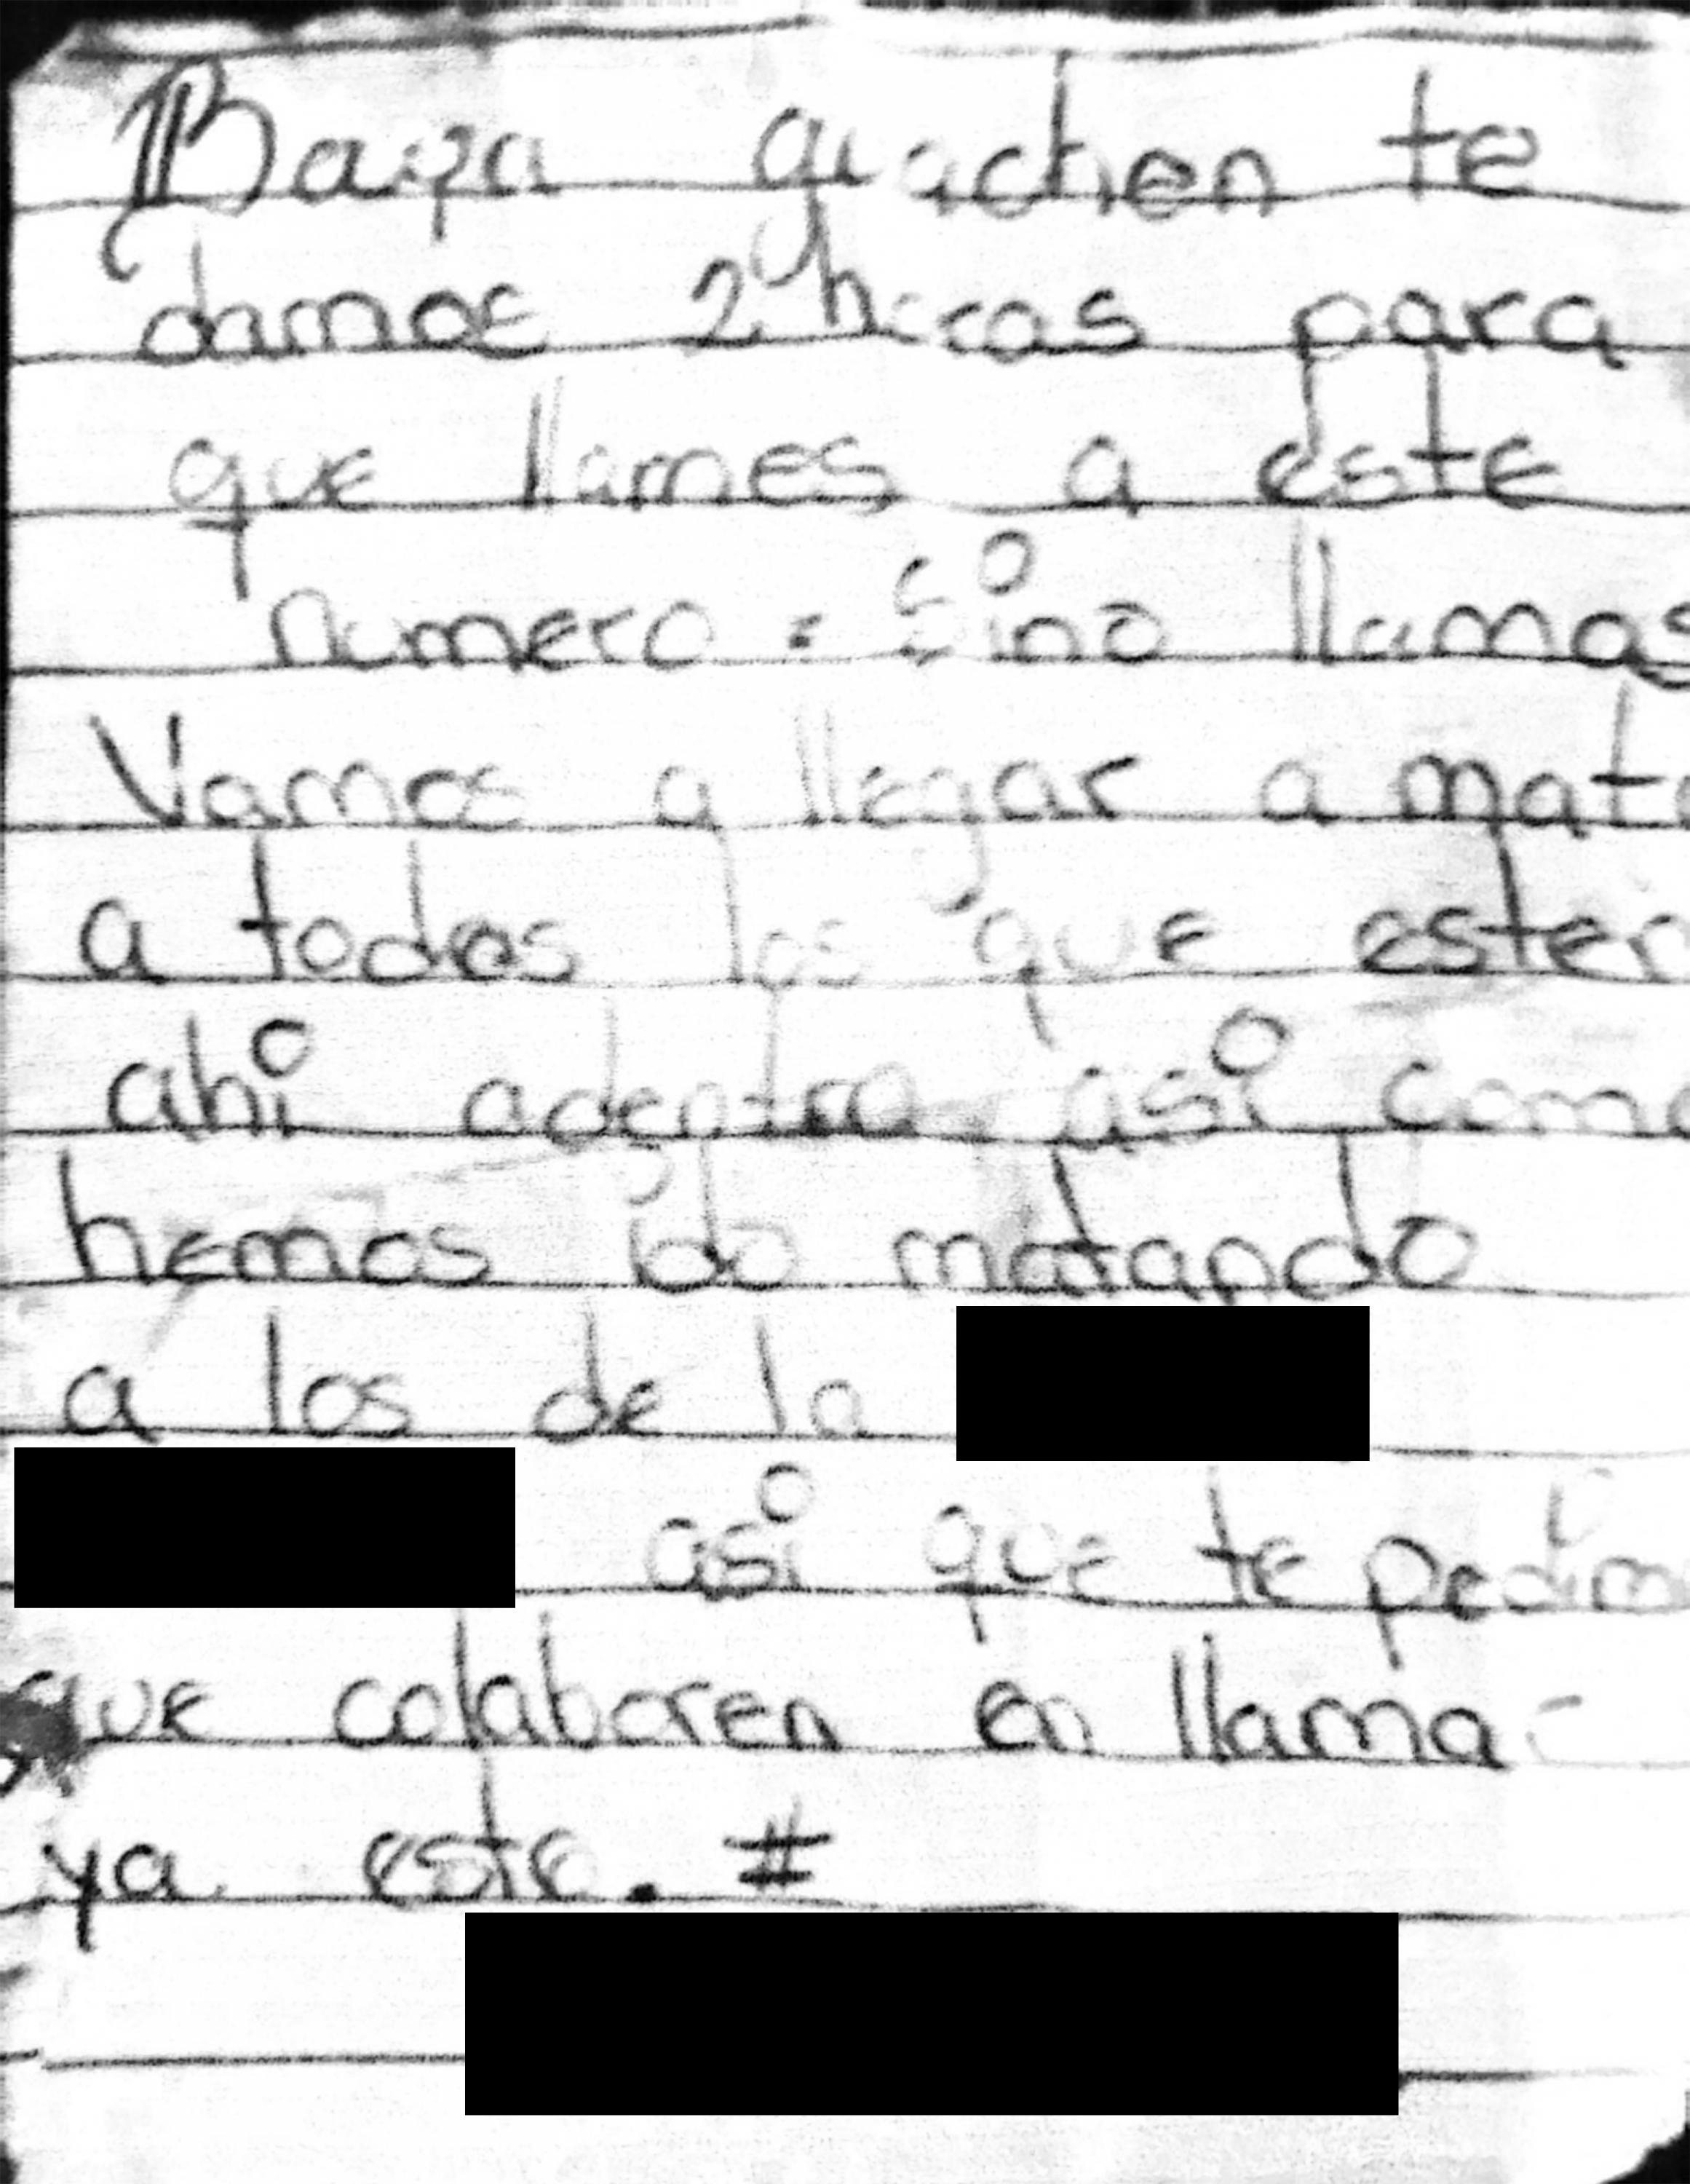 Baipa guachen te
damos 2 horas para
que llames a este
numero: sino llamas
Vamos a llegar a mata
a todos los que esten
ahi adentro asi como
hemos ido matando
a los de la
asi que te pedim
que colaboren en llama-
ya este. #